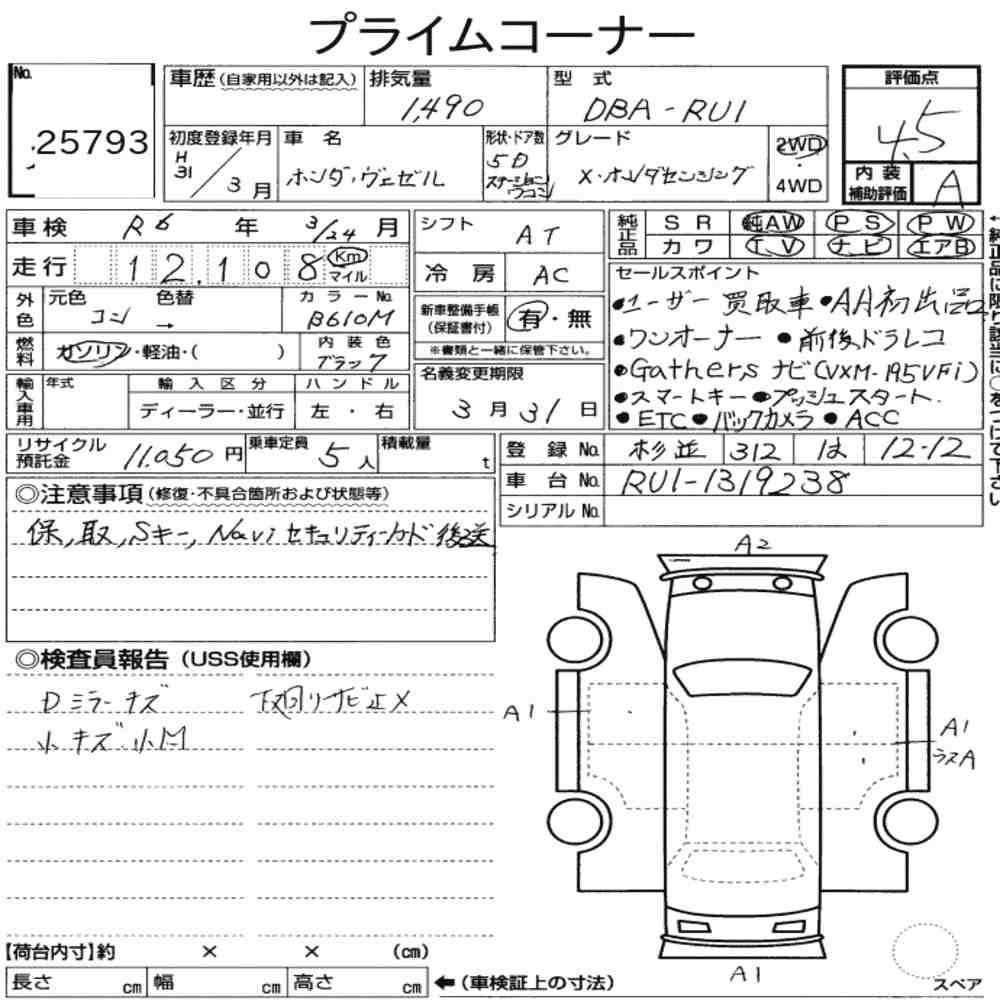 プライムコーナー
No. 25793
車歴(自家用以外は記入) 排気量 1,490 型式 DBA-RU1
初度登録年月 H31/3月 車名 ホンダ・ヴェゼル 形状・ドア数 5D ステーションワゴン グレード X・ホンダセンシング 2WD・4WD
評価点 4.5
内装補助評価 A
車検 R6年 3/24月 シフト AT
走行 12,108 Km マイル 冷房 AC
純正品 SR 純AW PS PW
カワ T.V ナビ エアB
外色 元色 コン → 色替 カラーNo. B610M
燃料 ガソリン・軽油・( ) 内装色 ブラック
新車整備手帳(保証書付) 有・無
※書類と一緒に保管下さい。
輸入車用 年式 輸入区分 ディーラー・並行 ハンドル 左・右
名義変更期限 3月31日
セールスポイント
●ユーザー買取車 ●AA初出品
●ワンオーナー ●前後ドラレコ
●Gathersナビ(VXM-195VFi)
●スマートキー ●プッシュスタート.
●ETC ●バックカメラ ●ACC
←純正品に限り該当に○をつけて下さい
リサイクル預託金 11,050円 乗車定員 5人 積載量 t
登録No. 杉並 312 は 12-12
車台No. RU1-1319238
シリアルNo.
◎注意事項(修復・不具合箇所および状態等)
保,取,Sキー,Naviセキュリティカード後送
◎検査員報告(USS使用欄)
Dミラーキズ 下廻りサビ止X
小キズ.小凹
A2
A1
A1
ラスA
A1
【荷台内寸】約 × × (cm)
長さ cm 幅 cm 高さ cm ←(車検証上の寸法)
スペア